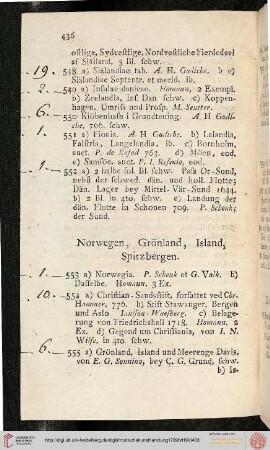 436
östlige, Sydvestlige, Nordvestliche Fierdedeel
af Siälland, 3 Bl. schw.
19. 548 a) Siälandiae tab. A. H. Godiche. b c)
Siälandiae Septentr. et merid. ib.
2. 549 a) Insulae danicae. Homann, 2 Exempl.
b) Zeelandia, inf Dan schw. c) Koppen-
hagen, Umriss und Prosp. M. Seutter.
6. 550 Kiöbenhavn i Grundtegning. A. H Godi-
che, 766. schw.
1. 551 a) Fionia. A. H Godiche. b) Lalandia,
Falstria, Langelandia. ib. c) Bornholm,
auct. P. de Kofod 763. d) Möen, eod.
e) Samsöe. auct. P. I. Resenio, eod.
1. 552 a) 2 halbe sol. Bl. schw. Pass Or-Sund,
nebst der schwed. dän. und holl. Flotte;
Dän. Lager bey Mittel-Vär-Sund 1644.
b) 2 Bl in 4to, schw. c) Landung der
dän. Flotte in Schonen 709. P. Schenk;
der Sund.
Norwegen, Grönland, Island,
Spitzbergen.
1. 553 a) Norwegia. P. Schenk et G. Valk. b)
Dasselbe. Homann. 3 Ex.
10. 554 a) Christian-Sandsstift, forfattet ved Chr.
Hammer, 776. b) Stift Stawanger, Bergen
und Aslo Jansson-Waesberg. c) Belage-
rung von Friedrichshall 1718. Homann. 2
Ex. d) Gegend um Christiania, von I. N.
Wilse, in 4to. schw.
6. 555 a) Grönland, Island und Meerenge Davis,
von E. G. Sonnino, bey C. G. Grund, schw.
b) Is-